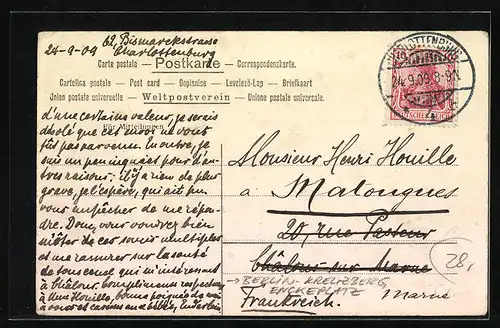 62, Bismarckstrasse
24-9-09 Charlottenburg
Carte postale — Postkarte — Correspondenzkarte.
Cartolina postale — Post card — Dopisnice — Levelező-Lap — Briefkaart
Union postale universelle. — Weltpostverein — Unione postale universale.
Für Mitteilungen
CHARLOTTENBURG
24.9.09. 8-9
10 10
DEUTSCHES REICH
d'une certaine valeur, je serais
désolé que cet envoi ne vous
fût pas parvenu. En outre, je
suis un peu inquiet pour d'au-
tres raisons. Il n'y a rien de plus
grave, je l'espère, qui ait pu
vous empêcher de me répon-
dre. Donc, vous voudrez bien
m'ôter de ces soucis multiples
et me rassurer sur la santé
de tous ceux qui m'intéressent
à Châlons. Compliments respectueux
à Mme Houille, bonne poignée de main
à vous et
Monsieur Henri Houille
à Matougues
20, rue Pasteur
Châlons sur Marne
→ BERLIN-KREUZBERG,
ENCKEPLATZ
Frankreich. Marne
28,-